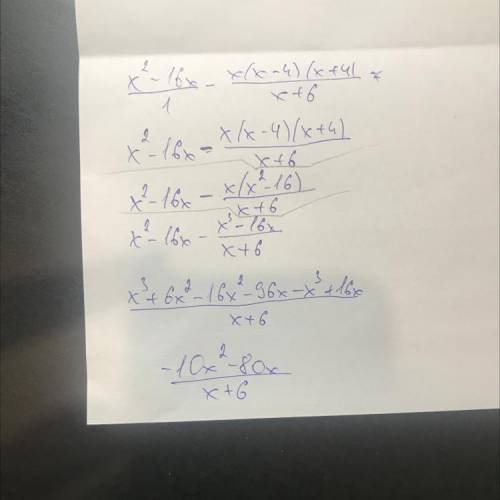 x² - 16x / 1 - x(x-4)(x+4) / x+6 =
x² - 16x - x(x-4)(x+4) / x+6
x² - 16x - x(x²-16) / x+6
x² - 16x - x³-16x / x+6
x³+6x²-16x²-96x-x³+16x / x+6
-10x²-80x / x+6